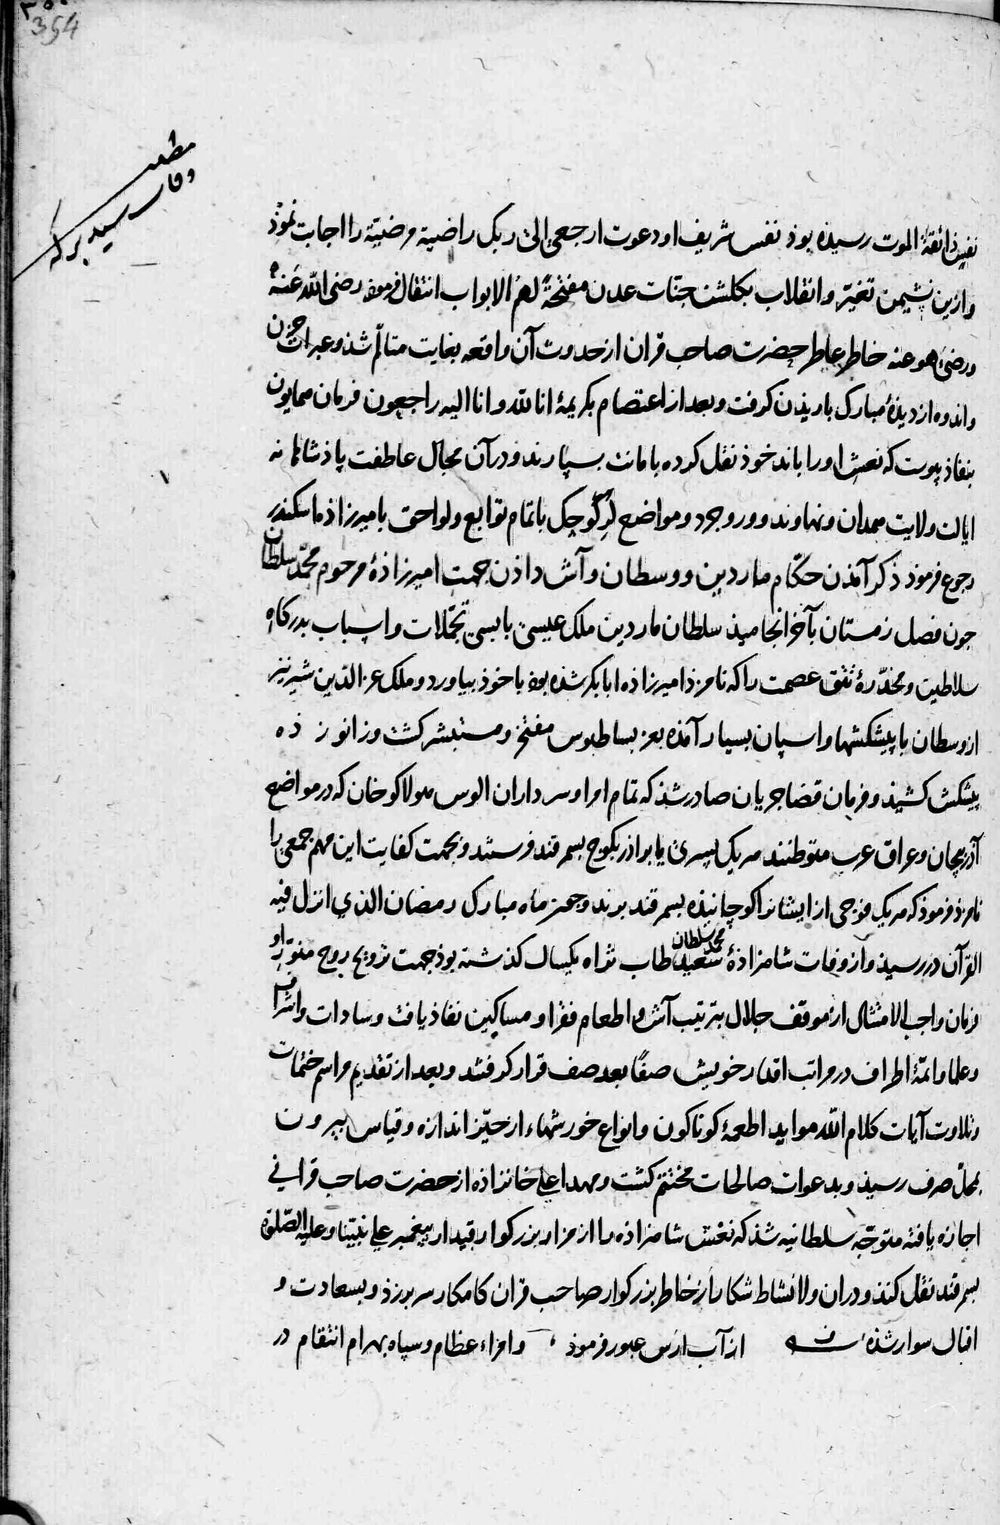 354
مطلب
وفات سید برکه
نفس ذائقة الموت رسیذه بوذ نفس شریف او دعوت ارجعی الی ربک راضیة مرضیة را اجابت نموذ
وازین نشیمن تغیر وانقلاب بکلشن جنات عدن مفتحة لهم الابواب انتقال فرموذ رضی الله عنه
ورضی هو عنه خاطر عاطر حضرت صاحب قران از حدوث آن واقعه بغایت متالم شذ و عبرات حزن
واندوه از دیذهٔ مبارک باریذن کرفت و بعد از اعتصام بکریمهٔ انا لله وانا الیه راجعون فرمان همایون
بنفاذ پیوست که نعش او را باندخوذ نقل کرده بامانت بسپارند و در آن مجال عاطفت پاذشاهانه
ایالت ولایت همدان و نهاوند و وروجرد و مواضع لر کوچک با تمام توابع و لواحق بامیرزاذه اسکندر
رجوع فرموذ ذکر آمذن حکام ماردین و وسطان وآش داذن جهت امیرزاذهٔ مرحوم محمد سلطان
جون فصل زمستان بآخر انجامیذ سلطان ماردین ملک عیسی با بسی تجملات واسباب بدرکاه
سلاطین و مخدرهٔ تتق عصمت را که نامزذ امیرزاذه ابابکر شذه بوذ با خوذ بیاورد و ملک عز الدین شیر نیز
از وسطان با پیشکشها واسپان بسیار آمذه بعز بساط بوس مفتخر و مستبشر کشت و زانو زذه
پیشکش کشیذ و فرمان قضا جریان صادر شذ که تمام امرا و سرداران الوس هولاکو خان که در مواضع
آذربیجان و عراق عرب متوطنند هریک پسری یا براذر بکوج بسمرقند فرستند و بجهت کفایت این مهم جمعی را
نامزذ فرموذ که هریک فوجی از ایشانرا کوچانیذه بسمرقند برند و چون ماه مبارک رمضان الذی انزل فیه
القرآن در رسیذ و از وفات شاهزاذهٔ سعید محمد سلطان طاب ثراه یکسال کذشته بوذ جهت ترویح روح منور او
فرمان واجب الامتثال از موقف جلال بترتیب آش و اطعام فقرا و مساکین نفاذ یافت و سادات واشراف
و علما وائمهٔ اطراف در مراتب اقدار خویش صفا بعد صف قرار کرفتند و بعد از تقدیم مراسم ختمات
و تلاوت آیات کلام الله مواید اطعمهٔ کوناکون و انواع خورشهاء از حیز اندازه و قیاس بیرون
بمحل صرف رسیذ و بدعوات صالحات مختتم کشت و مهد اعلی خانزاذه از حضرت صاحب قرانی
اجازه یافته متوجه سلطانیه شذ که نعش شاهزاذه را از مزار بزرکوار قیدار پیغمبر علی نبینا و علیه الصلوة
بسمرقند نقل کنذ و دران ولا نشاط شکار از خاطر بزرکوار صاحب قران کامکار سر بر زذ و بسعادت و
اقبال سوار شذه از آب ارس عبور فرموذ و امراء عظام و سپاه بهرام انتقام در